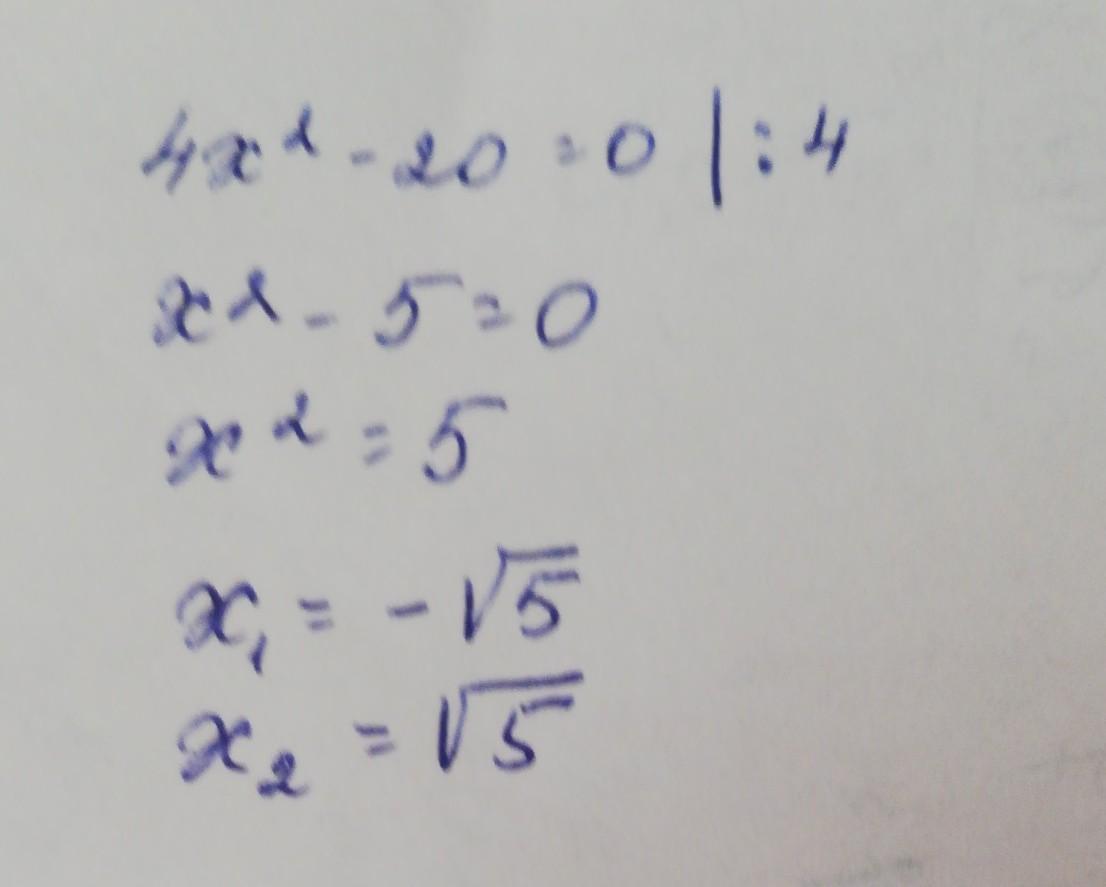 4x² - 20 = 0 | : 4
x² - 5 = 0
x² = 5
x₁ = - √5
x₂ = √5